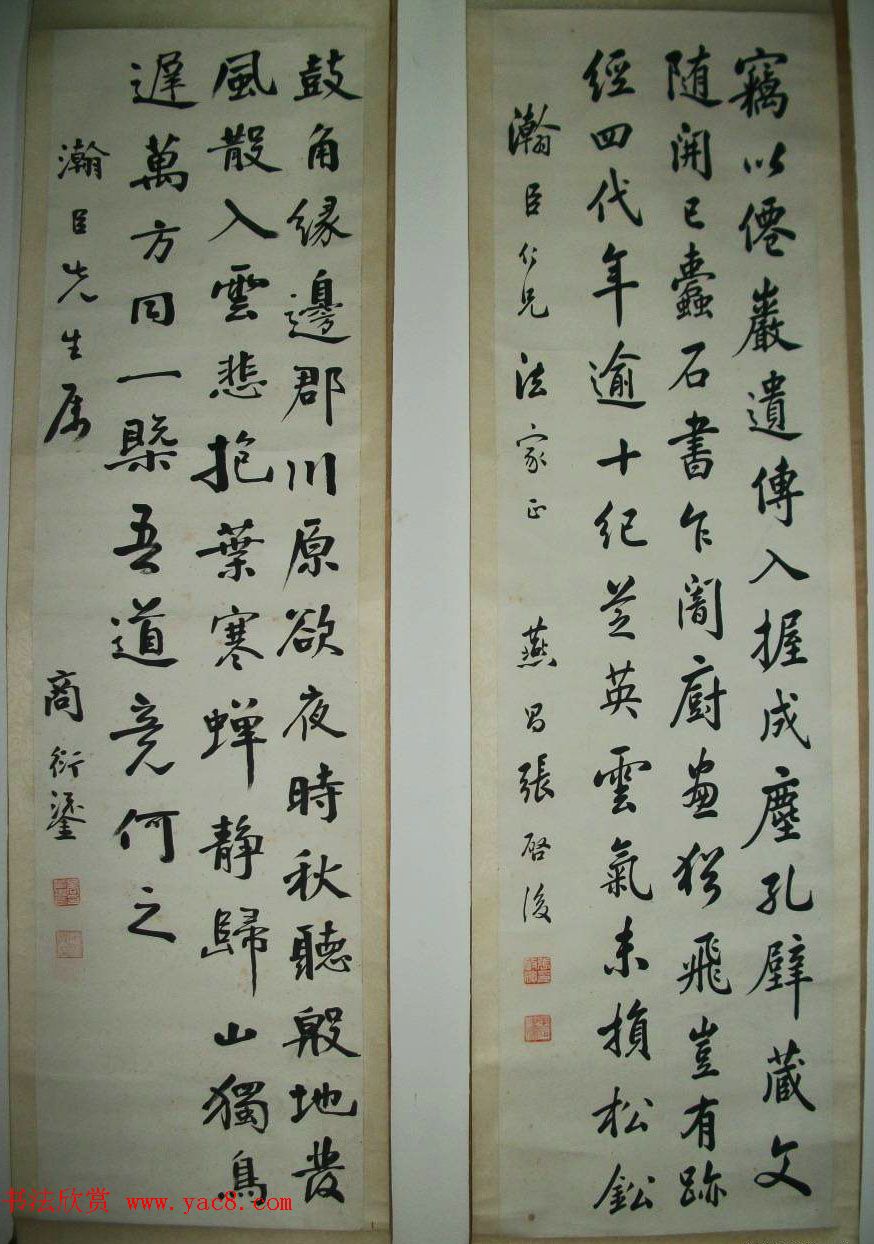 竊以僊巖遺傳入握成塵孔壁蔵文
随開已蠹石書乍闇廚畫猶飛豈有跡
經四代年逾十紀芝英雲氣未損松鈆
瀚臣仁兄法家正 燕昌張啓後
鼓角縁邊郡川原欲夜時秋聽殷地發
風散入雲悲抱葉寒蟬静歸山獨鳥
遲萬方同一槩吾道竟何之
瀚臣先生属 商衍鎏
书法欣赏 www.yac8.com